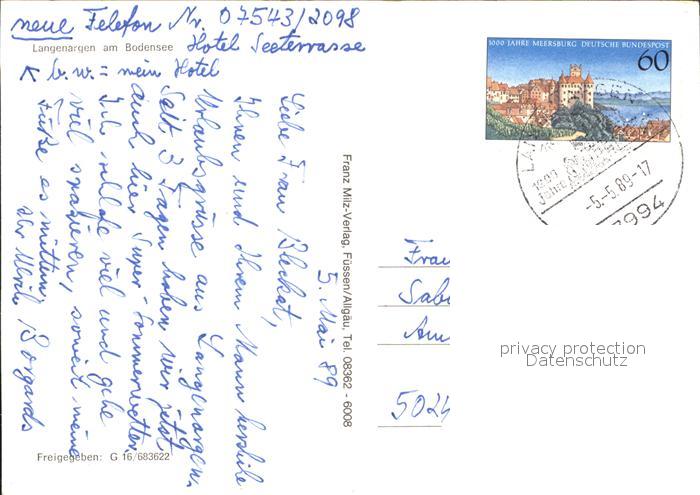 neue Telefon Nr. 07543/2098
Langenargen am Bodensee Hotel Seeterrasse
b.w. = mein Hotel
5. Mai 89
Liebe Frau Bleckat,
Ihnen und Ihrem Mann herzliche
Urlaubsgrüsse aus Langenargen.
Seit 3 Tagen haben wir jetzt
auch hier Super-Sommerwetter.
Ich male viel und gehe
viel spazieren, soweit meine
Füße es mitmachen.
Ihr Ulrich Borgards
Franz Milz-Verlag, Füssen/Allgäu, Tel. 08362 - 6008
Freigegeben: G 16/683622
1000 JAHRE MEERSBURG DEUTSCHE BUNDESPOST
60
-5.-5.89-17
7994
Frau
Sab
Am
5024
privacy protection
Datenschutz